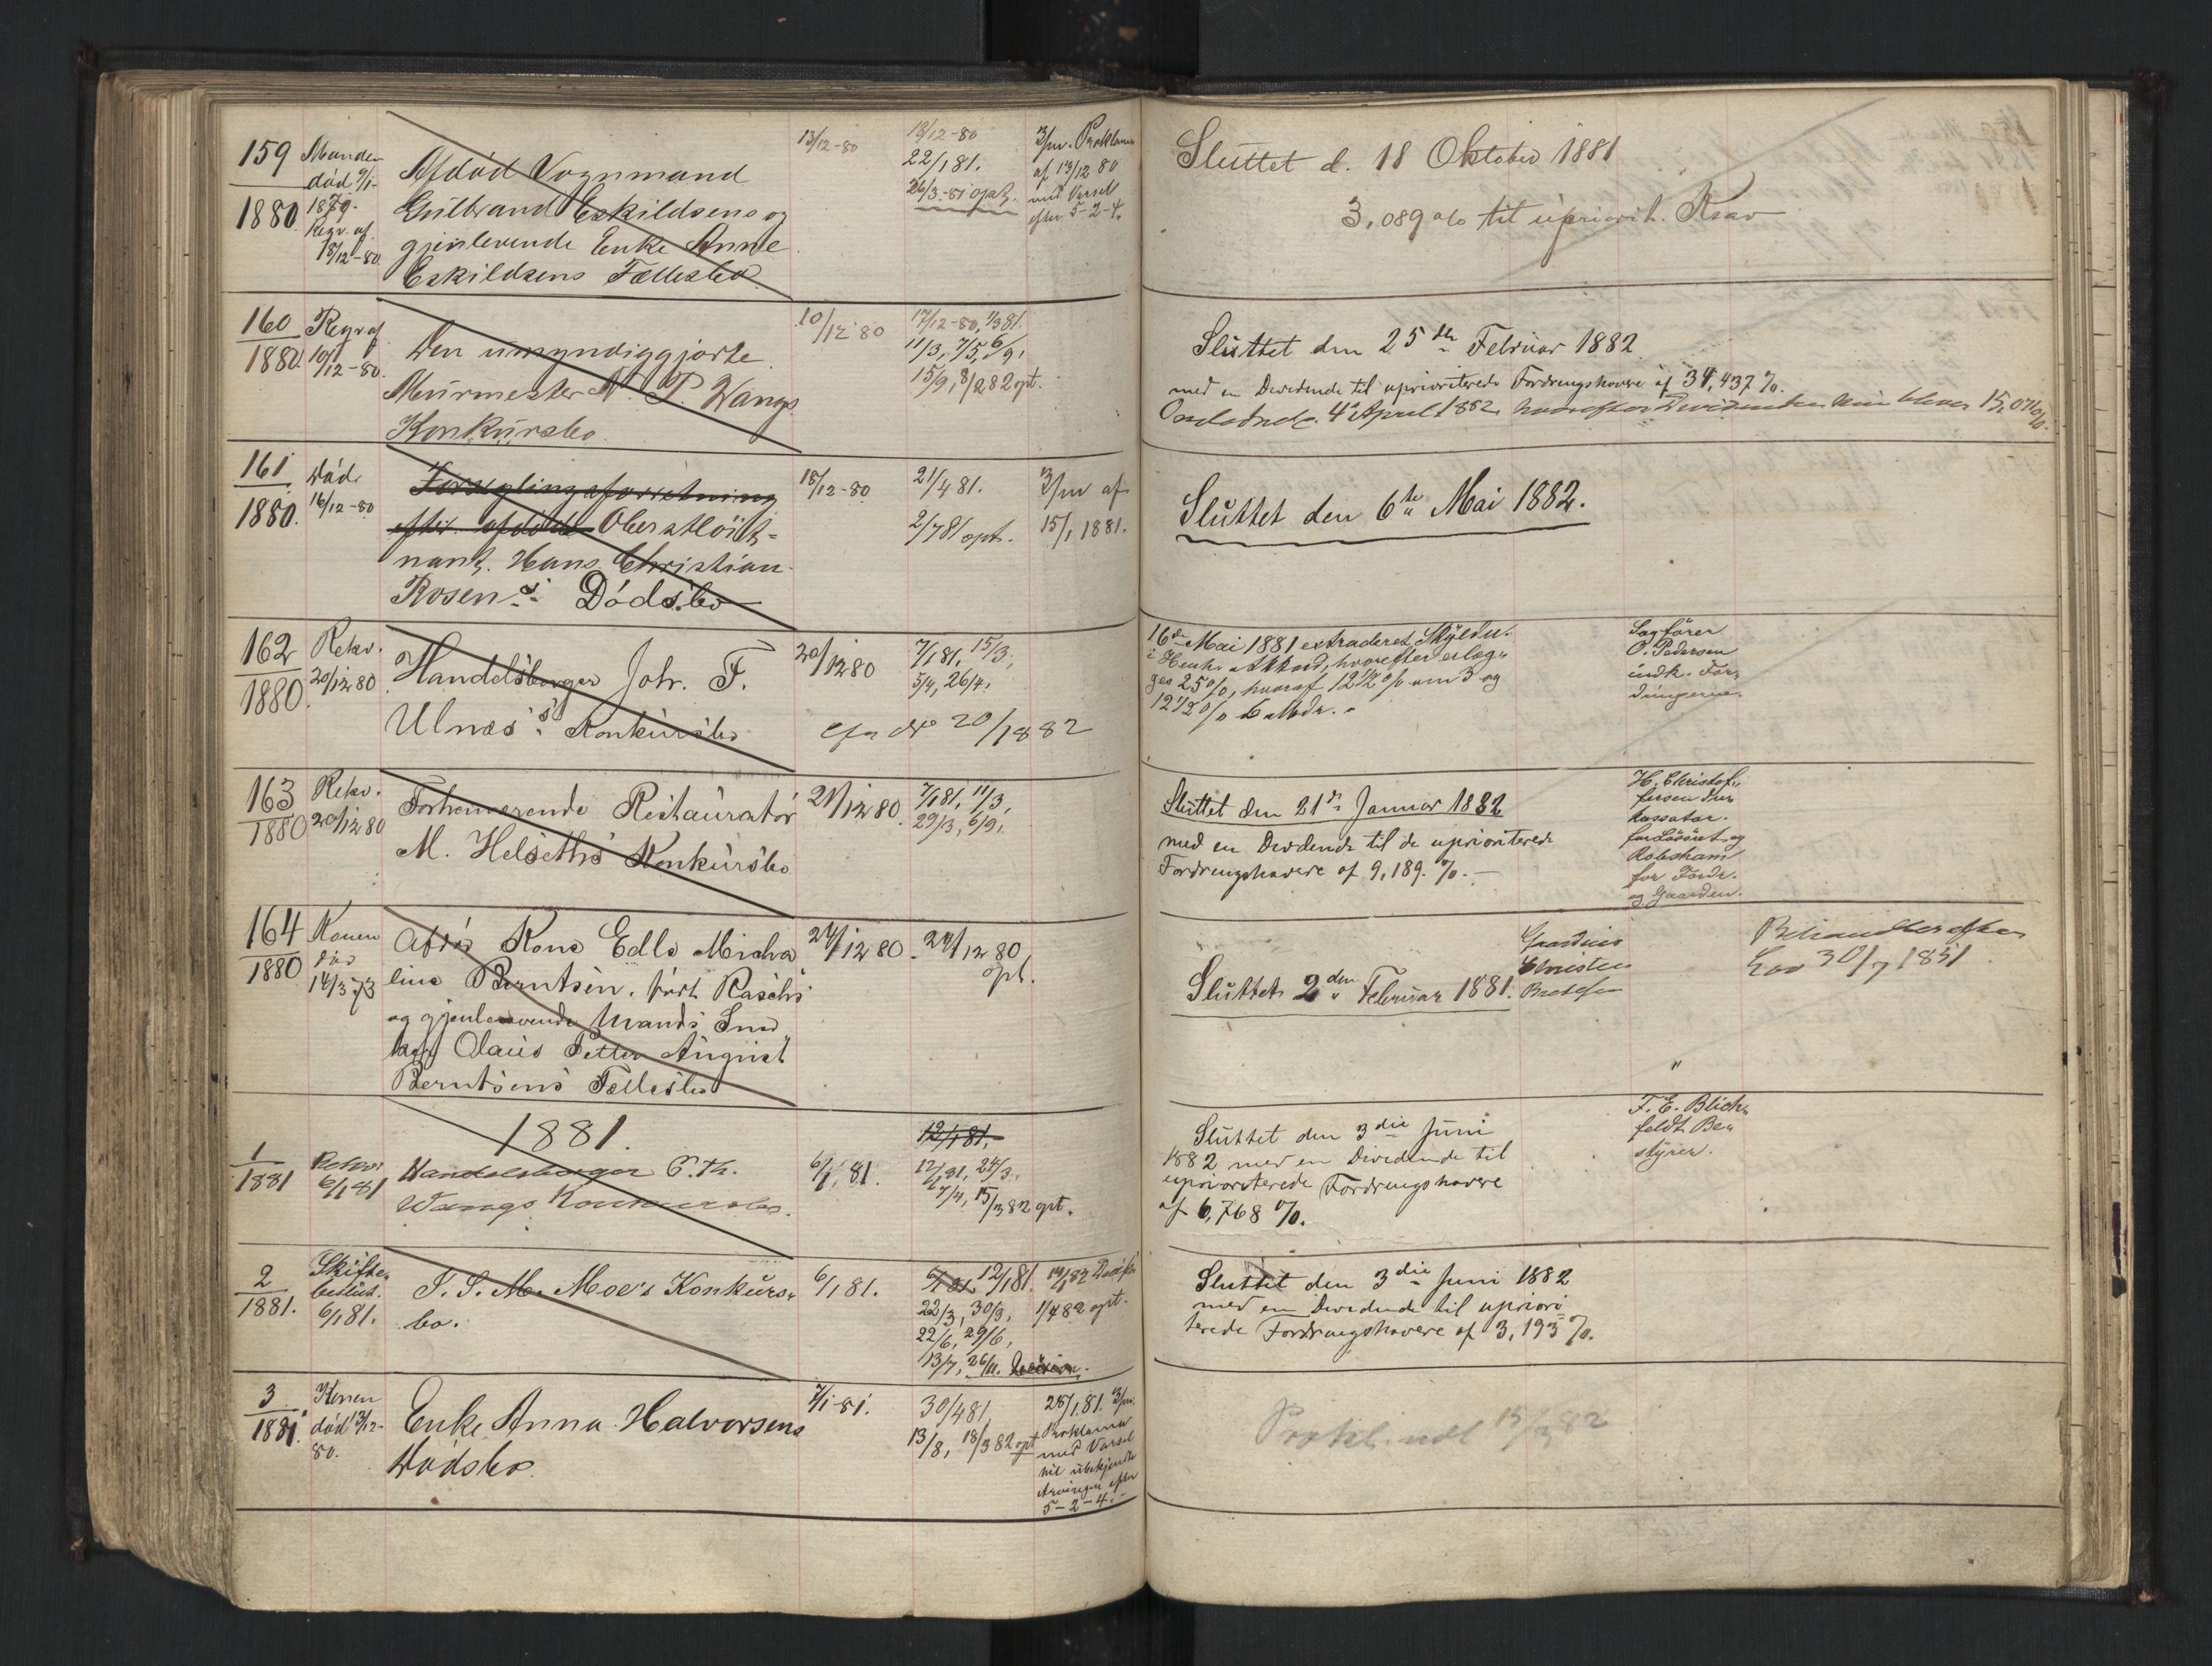 159
1880.
Manden
død 9/1-
1879.
Regr. af
18/12-80.
Afdød Vognmand
Gulbrand Eskildsens og
gjenlevende Enke Anne
Eskildsens Fællesbo.
13/12-80
18/12-80
22/1 81.
26/3-81 opt.
3/m. Proklama
af 13/12 80
med Varsel
efter 5-2-4.
Sluttet d. 18 Oktober 1881
3,089 o/o til uprior​it. Krav
160
1880.
Regr. af
10/12-80.
Den umyndiggjorte
Murmester N. P. Wangs
Konkursbo.
10/12 80
17/12-80, 1/3 81.
11/3, 7/5, 6/9,
15/9, 8/2 82 opt.
Sluttet den 25de Februar 1882
med en Devidende til uprioriterede Fordringshavere af 34,437 %.
4 April 1882, hvorefter Devidenden kun bliver 15,07 o/o.
161
1880.
Død
16/12-80
Forseglingsforretning
efter afdøde Oberstløit-
nant. Hans Christian
Rosen's Dødsbo
18/12-80
21/4 81.
2/7 81 opt.
3/m af
15/1 1881.
Sluttet den 6te Mai 1882.
162
1880.
Rekv.
20/12 80
Handelsborger Joh. F.
Ulnæs's Konkursbo
20/12 80
7/1 81, 15/3,
5/4, 26/4,
20/1 82
16de Mai 1881 extraderet Skyldn.
i Henh. Akkord, hvorefter erlæg-
ges 25%, hvoraf 12½ % om 3 og
12½ % 6 Mdr.
Sagfører
O. Pedersen
indk. For-
dringerne.
163
1880
Rekv.
20/12 80
Forhenværende Restauratør
M. Helseths Konkursbo
21/12 80.
7/1 81, 11/3,
29/3, 6/9,
Sluttet den 21de Januar 1882
med en Devidende til de uprioriterede
Fordringshavere af 9,189. %.
H. Christof-
fersen
Kassator.
for Løsøret og
Robsham
for Fordr.
og Gaarden.
164
1880
Konen
død
14/3 73
Afdøde Kone Edle Micha
line Berntsen, født Raschs
og gjenlevende Mands Sned
ker Claus Petter August
Berntsens Fællesbo
24/12 80.
24/12 80
opt.
Sluttet 2den Februar 1881.
Christen
Behandles efter
Lov 30/7 1851
"
1881.
1
1881
Rekv.
6/1 81
Handelsborger P. Th.
Wangs Konkursbo.
6/1, 81.
12/1 81.
12/1 81, 24/3,
7/4, 15/3 82 opt.
Sluttet den 3die Juni
1882 med en Dividende til
uprioriterede Fordringshavere
af 6,768 %.
F. E. Blich-
feldt Be-
styrer.
2
1881.
Skifte-
beslut.
6/1 81.
T. S. M. Moe's Konkurs-
bo.
6/1 81.
12/1 81.
22/3, 30/3,
22/6, 29/6,
13/7, 26/11. Decision.
1/4 82 opt.
Sluttet den 3die Juni 1882
med en Dividende til upriori
terede Fordringshavere af 3,193 %.
3
1881.
Konen
død 13/12-
80.
Enke Anna Halvorsens
Dødsbo.
7/1-81.
30/4 81
13/8, 18/3 82 opt
25/1 81. 3/m.
Proklama
med Varsel
til ubekjendte
Arvinger efter
5-2-4.
Prokl. udl 15/3 82